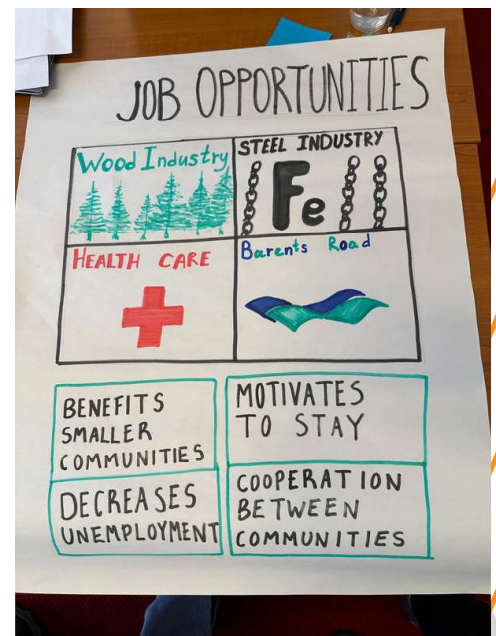 JOB OPPORTUNITIES
Wood Industry
STEEL INDUSTRY
Fe
HEALTH CARE
Barents Road
BENEFITS
SMALLER
COMMUNITIES
MOTIVATES
TO STAY
DECREASES
UNEMPLOYMENT
COOPERATION
BETWEEN
COMMUNITIES